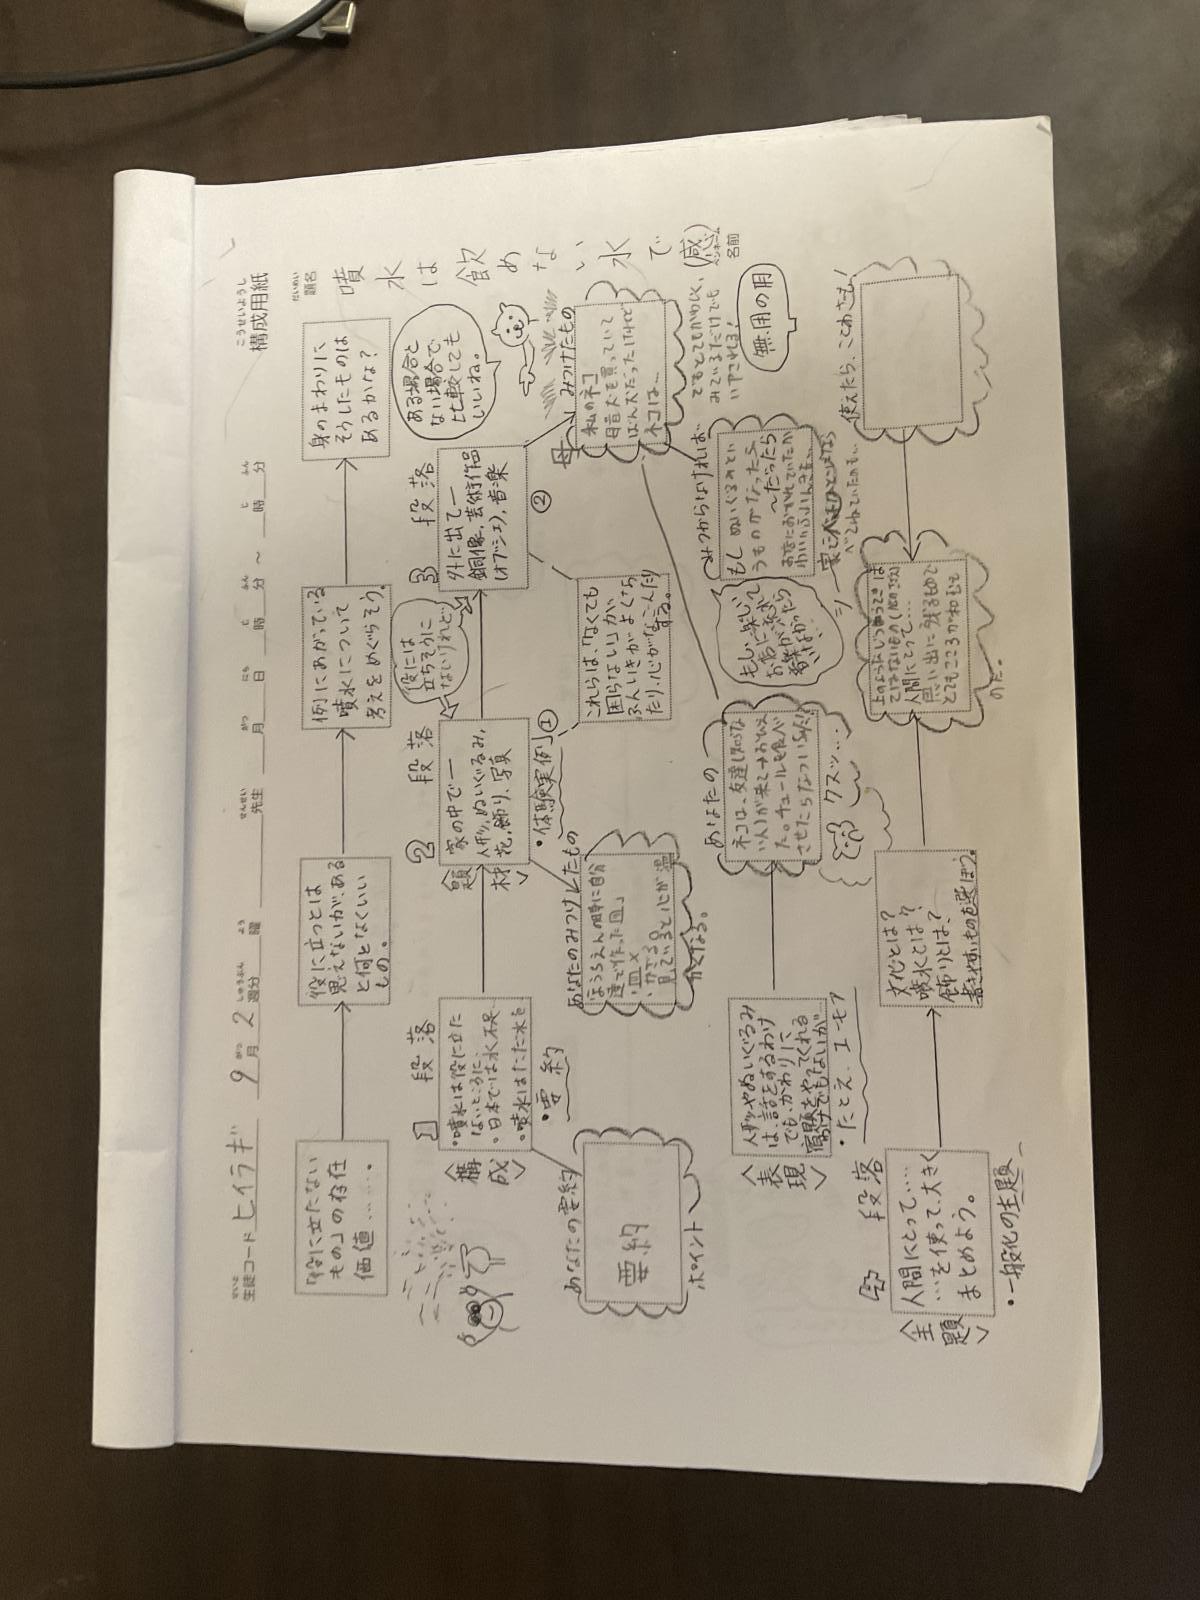 構成用紙
生徒コード ヒイラギ 9月2週分 曜 先生 月 日 時 分 ~ 時 分
題名 噴水は飲めない水で(感)
名前
「役に立たない
もの」の存在
価値……。
役に立つとは
思えないが、ある
と何となくいい
もの。
例にあがっている
噴水について
考えをめぐらそう。
身のまわりに
そうしたものは
あるかな?
ある場合と
ない場合で
比較しても
いいね。
<構成>
1段落
・噴水は役に立た
ないところに、
・日本では水不足…
・噴水はただ水を
・要約
あなたの要約
要約
ポイント
<題材>
2段落
家の中で―
人形、ぬいぐるみ、
花、飾り、写真
・体験実例①
役には
立ちそうに
ないけれど
3段落
外に出て―
銅像、芸術作品
(オブジェ)、音楽
②
これらは、「なくても
困らない」が、
ふんいきがよくなっ
たり、心がなごんだり
する。
あなたのみつけたもの
ようちえんの時に自分
達で作った皿」
・皿×
・かざる○
見ていると心が温
かくなる。
母
みつけたもの
私のネコ
母昔犬を買っていて
ネコは…
でもとてもかわいく、
みているだけでも
いやされる!
無用の用
<表現>
人形やぬいぐるみ
は、話をするわけ
でも、かわりに
宿題をやってくれる
わけでもないが…
・たとえ、ユーモア
あなたの
ネコは、友達(知らな
い人)が来て→おびえ
た。チュールを食べ
させたらなついた
クスッ…
もし、楽しい
お店に噴水
みつからなければ…
もし ぬいぐるみとい
うものがなかったら
〜だったら
<主題>
4段落
人間にとって……
…を使って、大きく
まとめよう。
・一般化の主題
文化とは?
噴水とは?
飾りとは?
書きやすいものを選ぼう。
人間にとって…
思い出に残るもので
とてもこころがわむも
のだ。
使えたら、ことわざも!